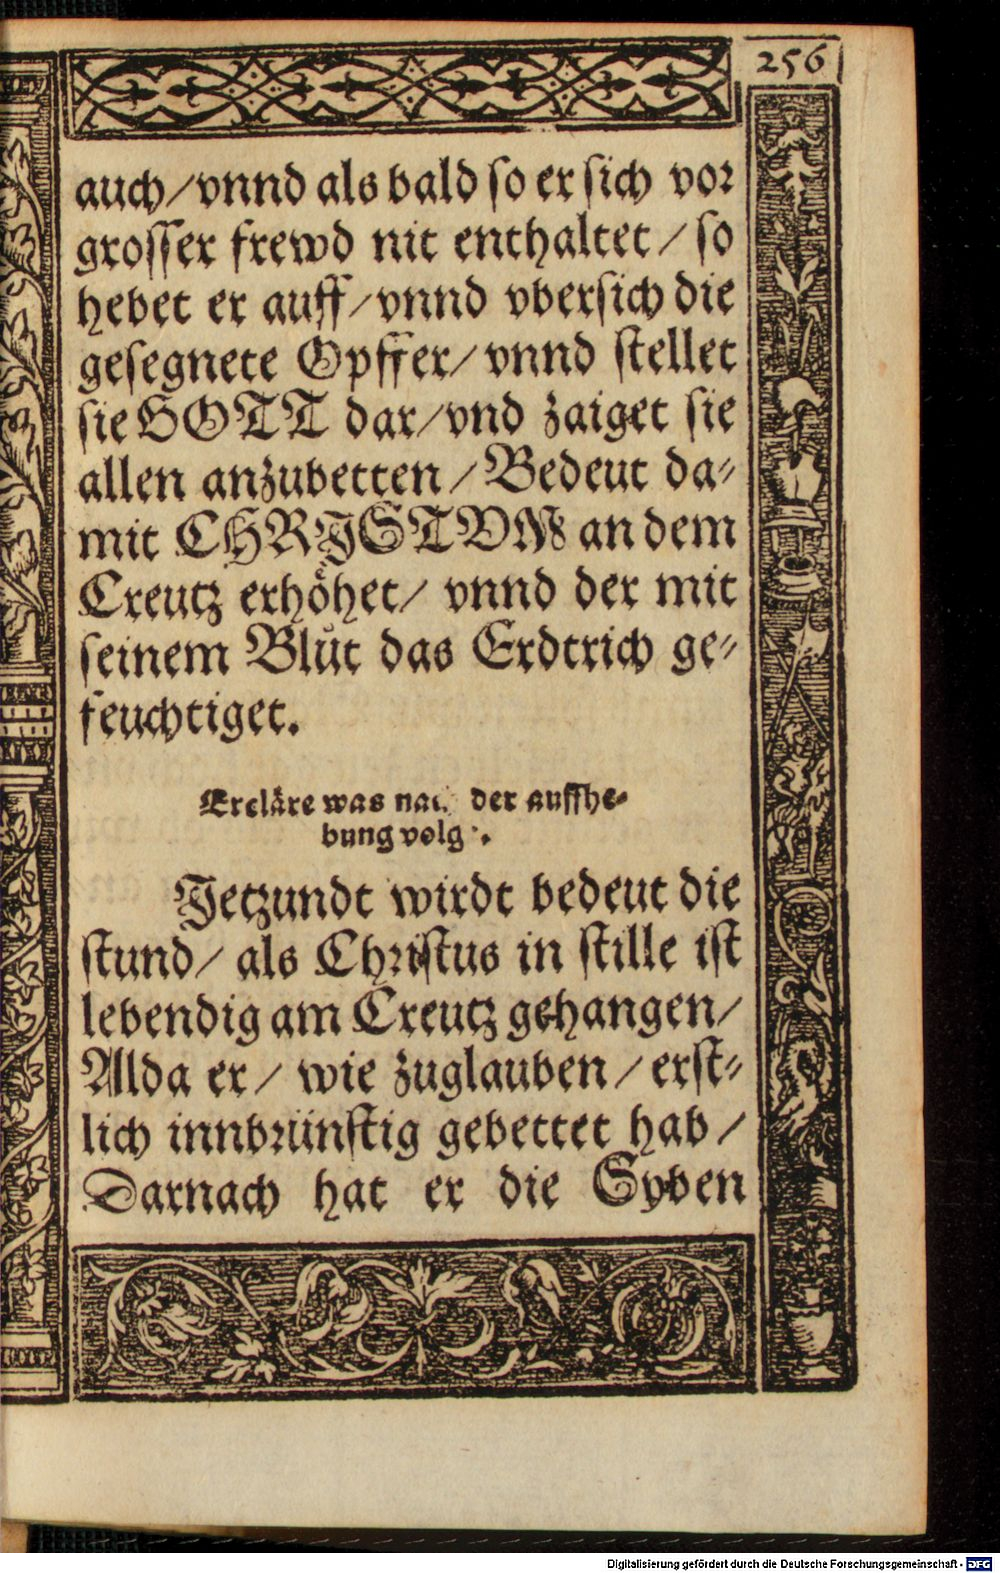 256
auch/vnnd als bald so er sich vor
grosser frewd nit enthaltet/so
hebet er auff/vnnd vbersich die
gesegnete Opffer/vnnd stellet
sie GOTT dar/vnd zaiget sie
allen anzubetten/Bedeut da-
mit CHRJSTVM an dem
Creutz erhöhet/vnnd der mit
seinem Blůt das Erdtrich ge-
feuchtiget.
Ercläre was der auffhe-
bung
Jetzundt wirdt bedeut die
stund/als Christus in stille ist
lebendig am Creutz gehangen/
Alda er/wie zuglauben/erst-
lich innbrünstig gebettet hab/
Darnach hat er die Syben
Digitalisierung gefördert durch die Deutsche Forschungsgemeinschaft - DFG